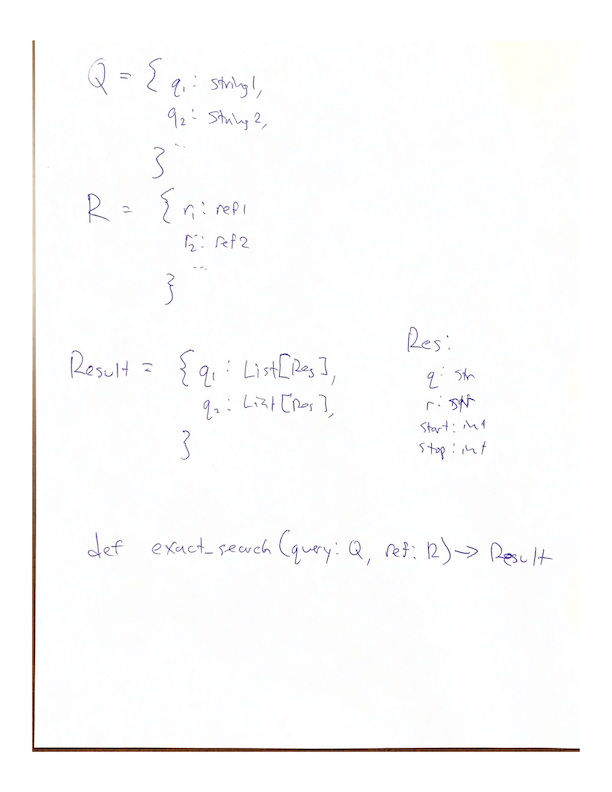 Q = { q₁: string1,
q₂: string2,
...
}
R = { r₁: ref1
r₂: ref2
...
}
Result = { q₁: List[Res],
q₂: List[Res],
}
Res:
q: str
r: str
start: int
stop: int
def exact_search(query: Q, ref: R) -> Result